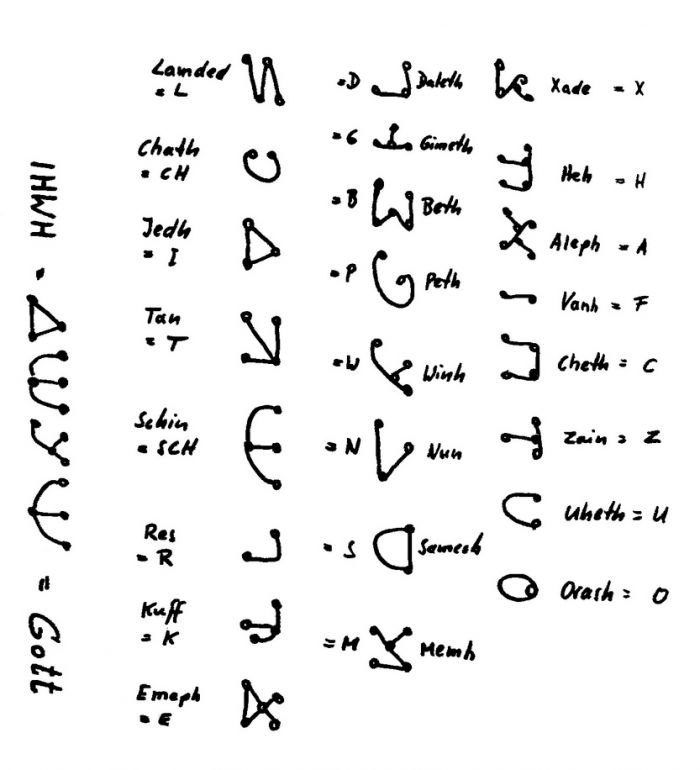 Lamded
= L
Chath
= CH
Jedh
= I
Tan
= T
Schin
= SCH
Res
= R
Kuff
= K
Emeph
= E
=D Daleth
=G Gimeth
=B Beth
=P Peth
=W Winh
=N Nun
=S Samech
=M Memh
Xade = X
Heh = H
Aleph = A
Vanh = F
Cheth = C
Zain = Z
Uheth = U
Orash = O
IHWH = = Gott